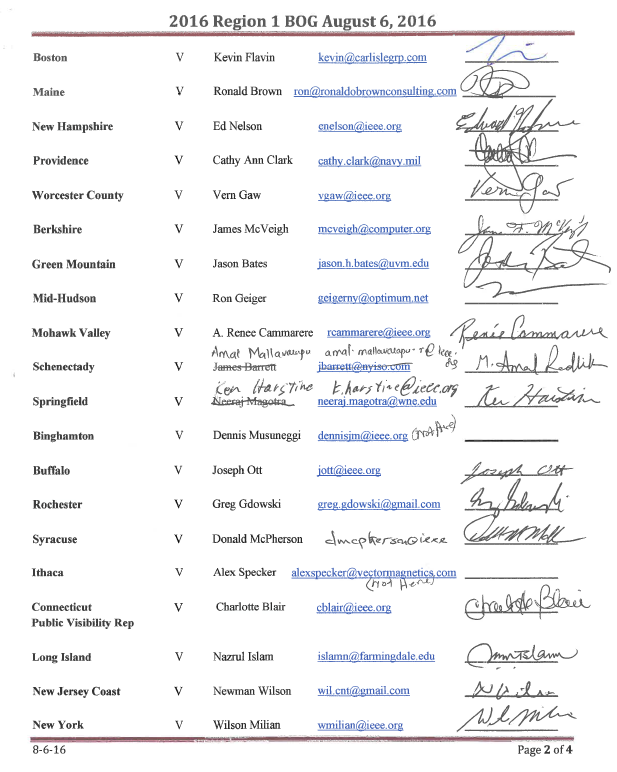 2016 Region 1 BOG August 6, 2016
Boston V Kevin Flavin kevin@carlislegrp.com
Maine V Ronald Brown ron@ronaldobrownconsulting.com
New Hampshire V Ed Nelson enelson@ieee.org
Providence V Cathy Ann Clark cathy.clark@navy.mil
Worcester County V Vern Gaw vgaw@ieee.org Vern Gaw
Berkshire V James McVeigh mcveigh@computer.org
Green Mountain V Jason Bates jason.h.bates@uvm.edu
Mid-Hudson V Ron Geiger geigerny@optimum.net
Mohawk Valley V A. Renee Cammarere rcammarere@ieee.org Renée Cammarere
Amal Mallavarapu amal.mallavarapu.r@ieee.org
Schenectady V James Barrett jbarrett@nyiso.com
Ken Harstine k.harstine@ieee.org
Springfield V Neeraj Magotra neeraj.magotra@wne.edu Ken Harstine
Binghamton V Dennis Musuneggi dennisjm@ieee.org (Not Here)
Buffalo V Joseph Ott jott@ieee.org Joseph Ott
Rochester V Greg Gdowski greg.gdowski@gmail.com
Syracuse V Donald McPherson dmcpherson@ieee
Ithaca V Alex Specker alexspecker@vectormagnetics.com
(Not Here)
Connecticut V Charlotte Blair cblair@ieee.org Charlotte Blair
Public Visibility Rep
Long Island V Nazrul Islam islamn@farmingdale.edu
New Jersey Coast V Newman Wilson wil.cnt@gmail.com
New York V Wilson Milian wmilian@ieee.org
8-6-16 Page 2 of 4